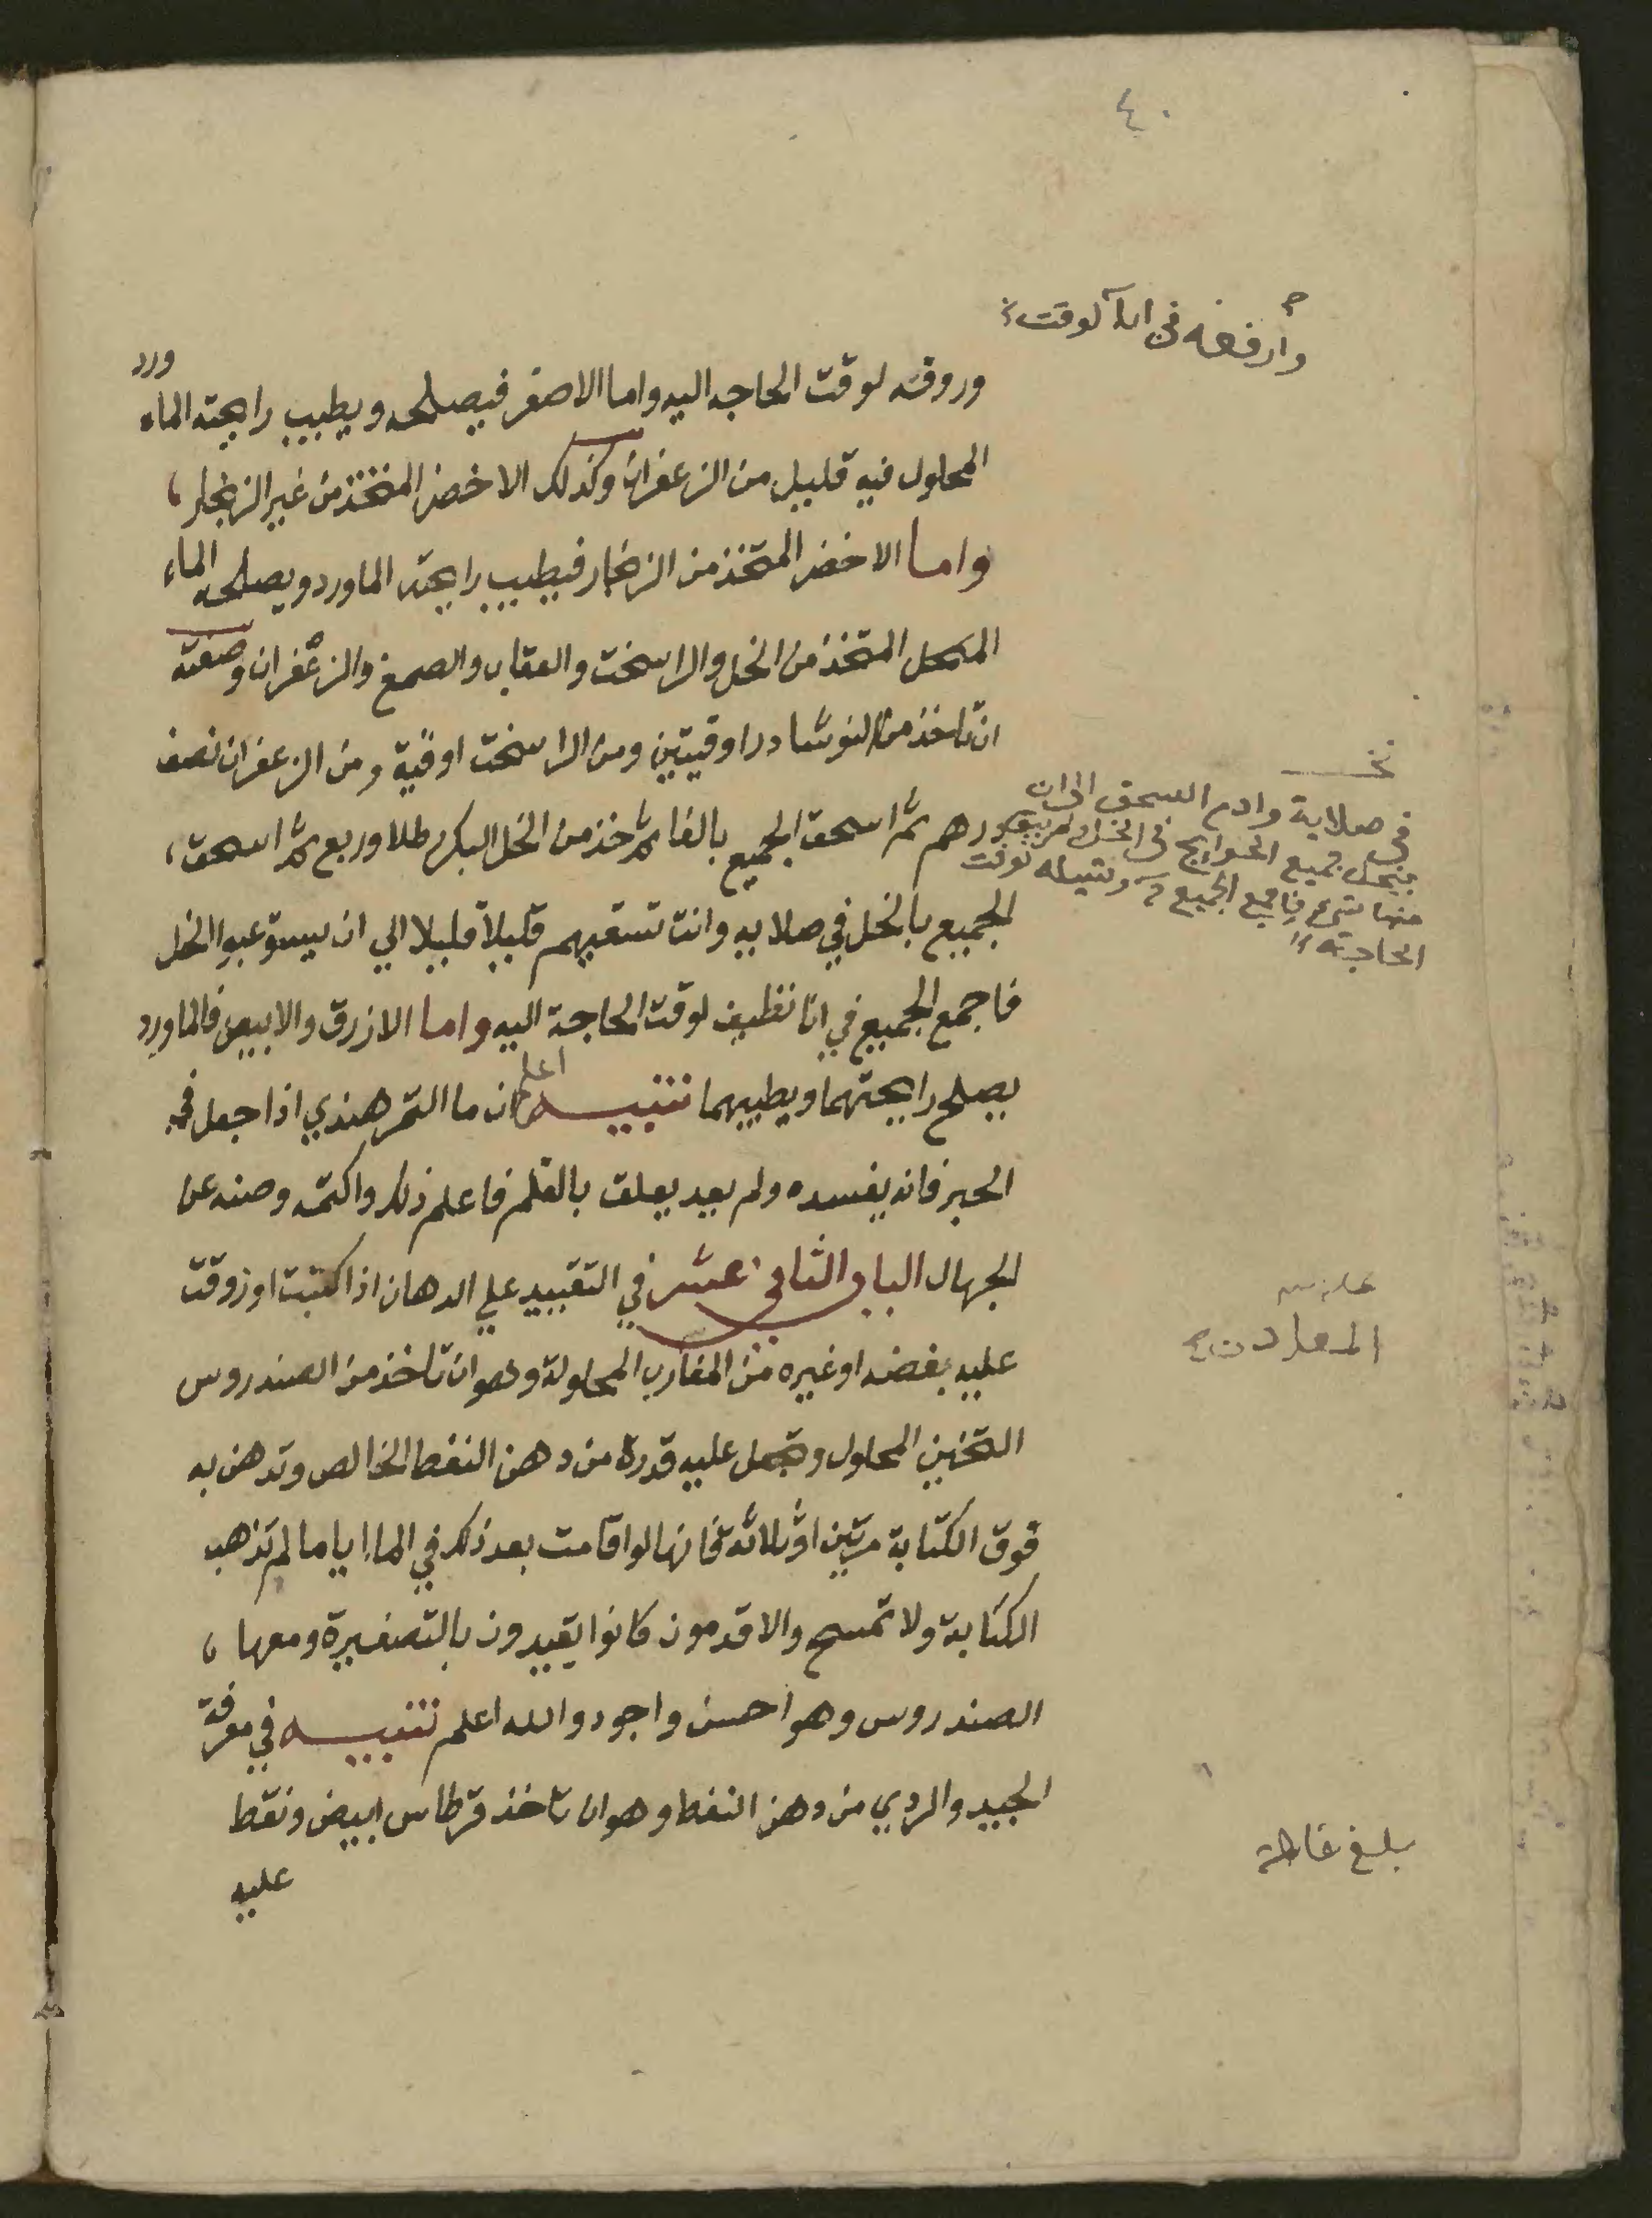 ٤٠
وأرفعه في انآ لوقت
وروقه لوقت الحاجه اليه واما الاصفر فيصلحه ويطيب رايحته الماء ورد
المحلول فيه قليل من الزعفران وكذلك الاخضر المتخذ من غير الزنجار
واما الاخضر المتخذ من الزنجار فيطيب رايحته الماورد ويصلحه الماء
المحل المتخذ من الخل والراسخت والعقاب والصمغ والزعفران وصفته
ان تاخذ من النوشادر اوقيتين ومن الراسخت اوقية ومن الزعفران نصف
درهم ثم اسحق الجميع بالغا ثم خذ من الخل البكر رطلا وربع ثم اسحق
الجميع بالخل في صلايه وانت تسقيهم قليلا قليلا الي ان يستوعبوا الخل
فاجمع الجميع في انا نظيف لوقت الحاجة اليه واما الازرق والابيض فالماورد
يصلح رايحتهما ويطيبهما تنبيه اعلم ان ما التمر هندي اذا جعل في
الحبر فانه يفسده ولم يعد يعلق بالقلم فاعلم ذلك واكتمه وصنه عن
الجهال الباب الثاني عشر في التقييد علي الدهان اذا كتبت او زوقت
عليه بفضه او غيره من المغارب المحلولة وهو ان تاخذ من الصندروس
التخين المحلول وتجعل عليه قدره من دهن النفط الخالص وتدهن به
فوق الكتابة مرتين او ثلاثه فانها لو اقامت بعد ذلك في الماء اياما لم تذهب
الكتابة ولا تمسح والاقدمون كانوا يقيدون بالتصفيرة ومعها
الصندروس وهو احسن واجود والله اعلم تنبيه في معرفة
الجيد والردي من دهن النفط وهو ان تاخذ قرطاس ابيض ونقط
عليه
في صلاية وادم السحق الى ان
ينحل جميع الحوايج في الخل ولم يبق
منها شيء فاجمع الجميع وشيله لوقت
الحاجة
المعادن
بلغ مقابلة